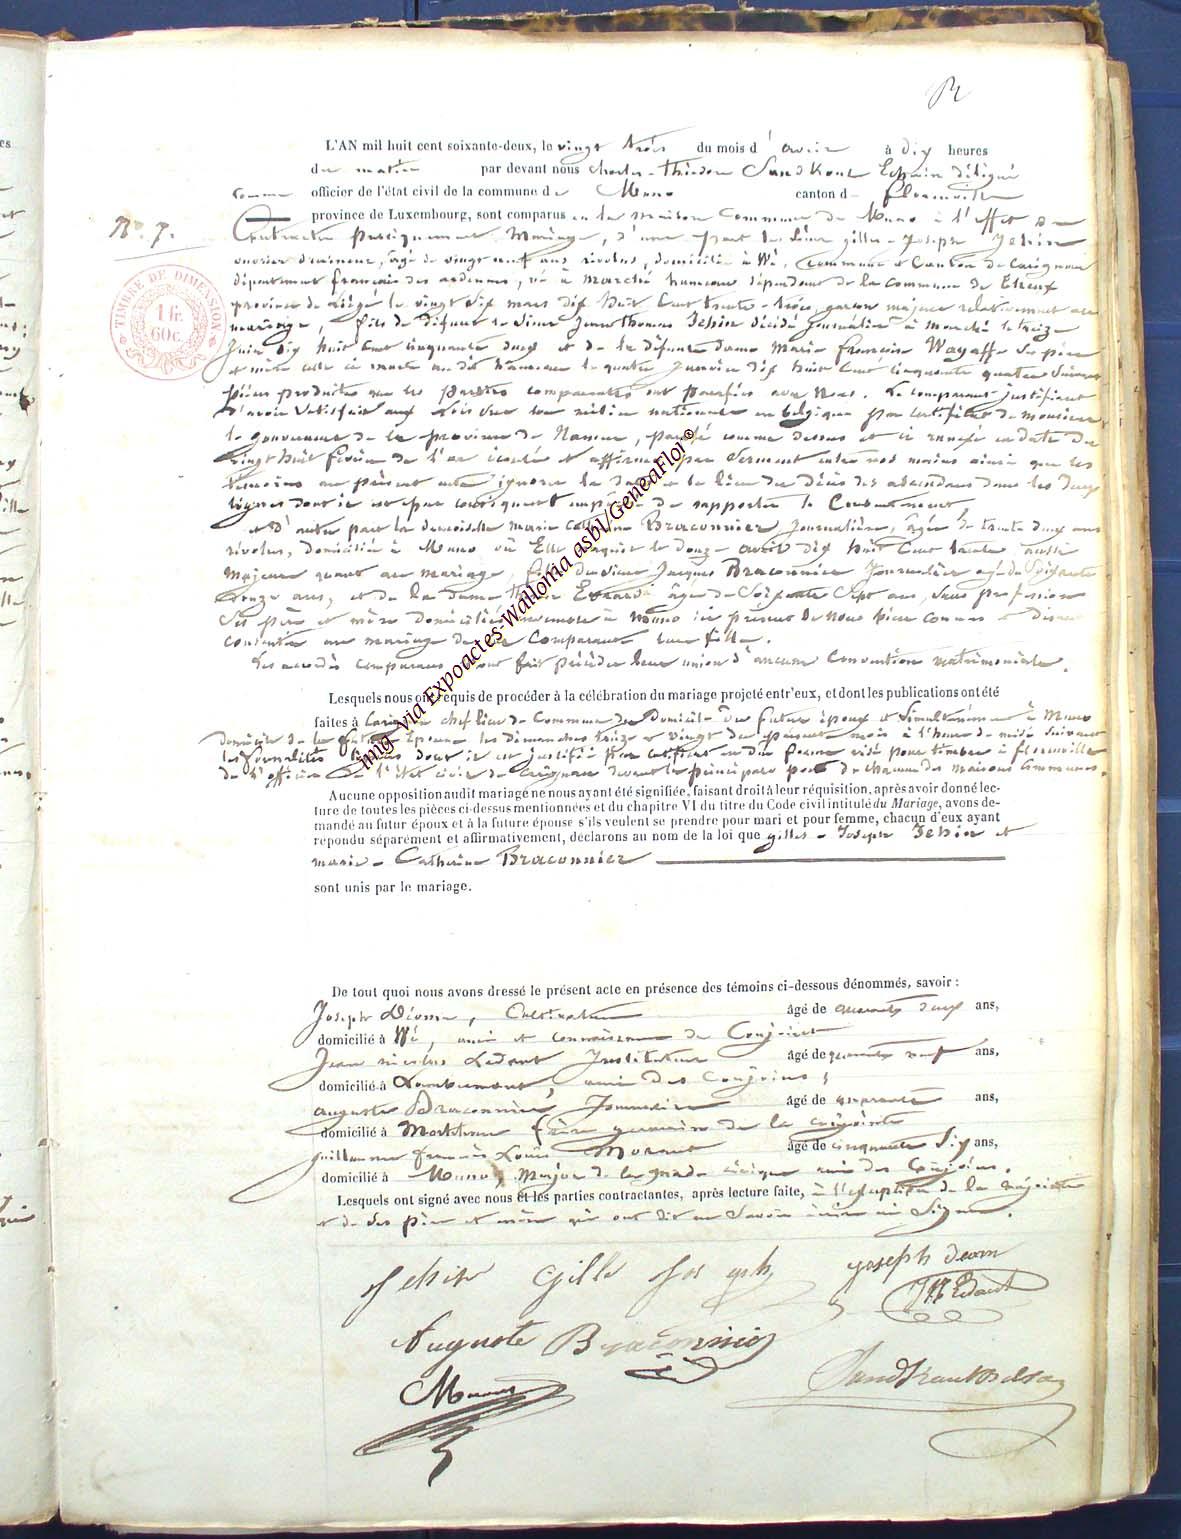 No. 7.
TIMBRE DE DIMENSION
1 fr.
60c.
L'AN mil huit cent soixante-deux, le vingt trois du mois d'avril à dix heures
du matin par devant nous Charles-Théodore Echevin délégué
comme officier de l'état civil de la commune de Muno canton d- Florenville
province de Luxembourg, sont comparus en la maison Commune de Muno à l'effet de
Contracter mariage, d'une part le sieur gilles-Joseph Jehin
ouvrier, âgé de vingt neuf ans révolus, domicilié à Wé, commune et Canton de Carignan
département français des ardennes, né à marché hameau dépendant de la commune de Theux
province de Liége le vingt six mars dix huit Cent trente-trois, garçon majeur relativement au
mariage, fils de défunt le Sieur Jean thomas Jehin décédé Journalier à marché le treize
Juin dix huit Cent cinquante deux et de la défunte dame Marie françoise Wayaffe Ses père
et mère celle ci morte au dit hameau le quatre Janvier dix huit Cent cinquante quatre Suivant
pièces produites par les parties comparantes et paraphées par Nous. Le comparant justifiant
d'avoir Satisfait aux Lois sur la milice nationale en belgique par certificat de monsieur
le gouverneur de la province de Namur, paraphé comme dessus et ci annexé en date du
vingt huit février de l'an écoulé et affirmant par Serment entre nos mains ainsi que les
témoins au présent acte ignorer le lieu du décès des ascendans dans les deux
lignes dont il est par conséquent empêché de rapporter le Consentement,
et d'autre part la demoiselle Marie Catherine Braconnier, Journalière, âgée de trente deux ans
révolus, domiciliée à Muno où Elle naquit le douze avril dix huit Cent trente, aussi
majeure quant au mariage, fille du Sieur Jacques Braconnier Journalier agé de Soixante
onze ans, et de la dame Evrard âgée de Soixante Sept ans, Sans profession
Ses père et mère domiciliés ensemble à Muno ici présent de Nous bien connus et disant
consentir au mariage de la Comparante leur fille.
Les accordés comparans n'ont fait précéder leur union d'aucune Convention matrimoniale.
Lesquels nous ont requis de procéder à la célébration du mariage projeté entr'eux, et dont les publications ont été
faites à Carignan chef lieu de Commune du Domicile du futur époux et Simultanément à Muno
domicile de la future Epouse les dimanches treize et vingt du présent mois à l'heure de midi Suivant
les formalités légales dont il est justifié par certificat en due forme visé pour timbre à florenville
de l'officier de l'état civil de Carignan devant la principale porte de chacune des maisons Communes.
Aucune opposition audit mariage ne nous ayant été signifiée, faisant droit à leur réquisition, après avoir donné lec-
ture de toutes les pièces ci-dessus mentionnées et du chapitre VI du titre du Code civil intitulé du Mariage, avons de-
mandé au futur époux et à la future épouse s'ils veulent se prendre pour mari et pour femme, chacun d'eux ayant
répondu séparément et affirmativement, déclarons au nom de la loi que gilles-Joseph Jehin et
marie-Catherine Braconnier
sont unis par le mariage.
De tout quoi nous avons dressé le présent acte en présence des témoins ci-dessous dénommés, savoir :
Joseph Déom, Cultivateur âgé de quarante deux ans,
domicilié à Wé, ami et connaissance du Conjoint
Jean nicolas Ledent Instituteur âgé de quarante neuf ans,
domicilié à Lambermont, ami des Conjoins ;
auguste Braconnier, Journalier âgé de quarante ans,
domicilié à frère germain de la conjointe
guillaume françois Louis Moraux âgé de cinquante Six ans,
domicilié à Muno, Major de la garde civique ami des Conjoins.
Lesquels ont signé avec nous et les parties contractantes, après lecture faite, à l'exception de la mariée
et de Ses père et mère qui ont dit ne Savoir écrire ni Signer.
Jehin Gille Joseph Joseph Deom
JN Ledent
Auguste Braconnier
img via Expoactes-Wallonia asbl/GeneaFloi ©